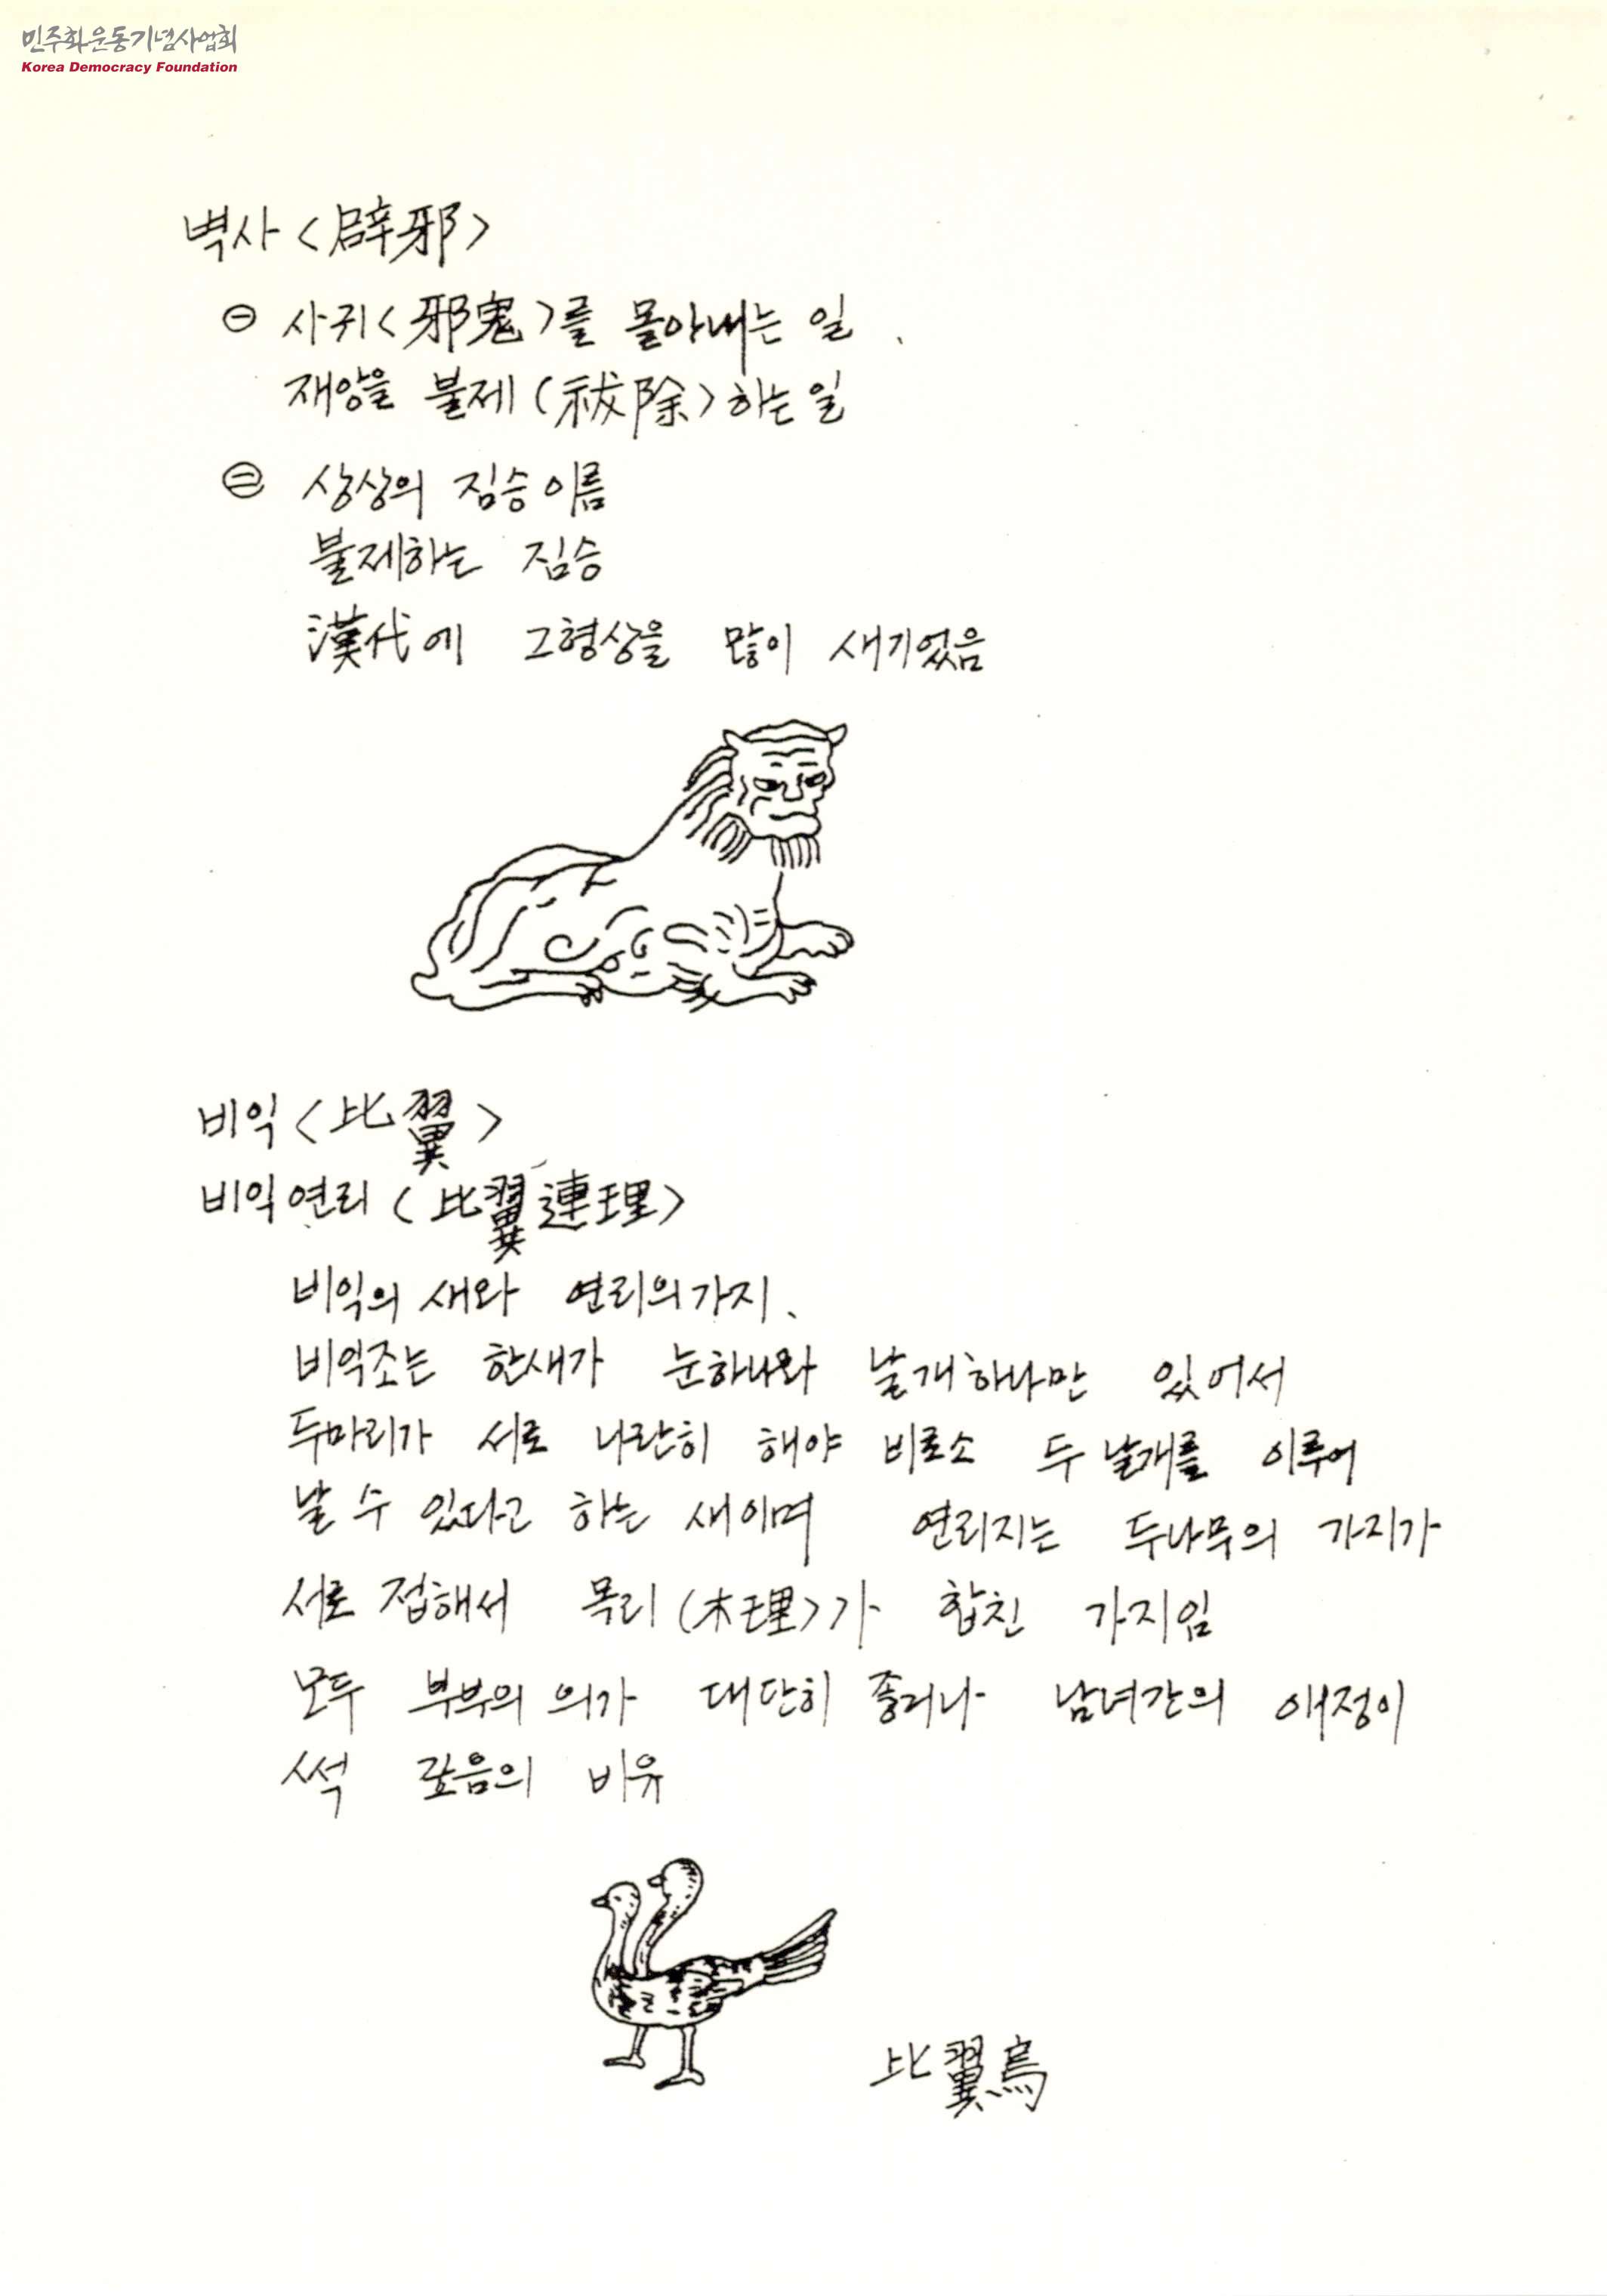 민주화운동기념사업회
Korea Democracy Foundation
벽사<辟邪>
㊀ 사귀<邪鬼>를 몰아내는 일.
재앙을 불제(祓除)하는 일
㊁ 상상의 짐승이름
불제하는 짐승
漢代에 그형상을 많이 새기었음
비익<比翼>
비익연리(比翼連理)
비익의 새와 연리의가지.
비익조는 한새가 눈하나와 날개하나만 있어서
두마리가 서로 나란히 해야 비로소 두 날개를 이루어
날 수 있다고 하는 새이며 연리지는 두나무의 가지가
서로 접해서 목리(木理)가 합친 가지임
모두 부부의 의가 대단히 좋거나 남녀간의 애정이
썩 깊음의 비유
比翼鳥